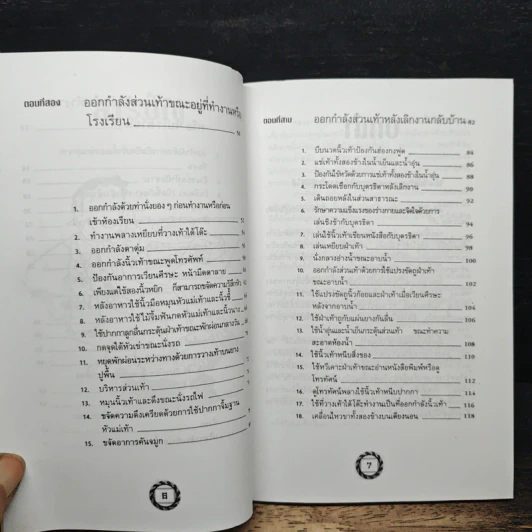 ตอนที่สอง ออกกำลังส่วนเท้าขณะอยู่ที่ทำงานหรือ
โรงเรียน
1. ออกกำลังด้วยท่านั่งยอง ๆ ก่อนทำงานหรือก่อน
เข้าห้องเรียน
2. ทำงานพลางเหยียบที่วางเท้าใต้โต๊ะ
3. ออกกำลังตาตุ่ม
4. ออกกำลังนิ้วเท้าขณะพูดโทรศัพท์
5. ป้องกันอาการเวียนศีรษะ หน้ามืดตาลาย
6. เพียงแต่ใช้สองนิ้วหยิก ก็สามารถขจัดความรู้สึกหิว
7. หลังอาหารใช้นิ้วมือหมุนหัวแม่เท้าและนิ้วชี้
8. หลังอาหารใช้ไม้จิ้มฟันกดหัวแม่เท้าและนิ้วนาง
9. ใช้ปากกาลูกลื่นกระตุ้นฝ่าเท้าขณะพักผ่อนกลางวัน
10. กดจุดใต้หัวเข่าขณะนั่งรถ
11. หยุดพักผ่อนระหว่างทางด้วยการวางเท้าบนยาง
ปูพื้น
12. บริหารส่วนเท้า
13. หมุนนิ้วเท้าและดึงขณะนั่งรถไฟ
14. ขจัดความตึงเครียดด้วยการใช้ปากกาจิ้มฐาน
หัวแม่เท้า
15. ขจัดอาการคันจมูก
6
ตอนที่สาม ออกกำลังส่วนเท้าหลังเลิกงานกลับบ้าน 82
1. บีบนวดนิ้วเท้าป้องกันส่องกงฟูด 84
2. แช่เท้าทั้งสองข้างในน้ำเย็นและน้ำอุ่น 86
3. ป้องกันไข้หวัดด้วยการแช่เท้าทั้งสองข้างในน้ำอุ่น 88
4. กระโดดเชือกกับบุตรธิดาหลังเลิกงาน 90
5. เดินถอยหลังในสวนสาธารณะ 92
6. รักษาความแข็งแรงของร่างกายและจิตใจด้วยการ
เล่นชิงช้ากับบุตรธิดา 94
7. เล่นใช้นิ้วเท้าเขียนหนังสือกับบุตรธิดา 96
8. เล่นเหยียบฝ่าเท้า 98
9. นั่งกลางอ่างน้ำขณะอาบน้ำ 100
10. ออกกำลังส่วนเท้าด้วยการใช้แปรงขัดถูฝ่าเท้า
ขณะอาบน้ำ 102
11. ใช้แปรงขัดถูนิ้วก้อยและฝ่าเท้าเมื่อเวียนศีรษะ
หลังจากอาบน้ำ 104
12. ใช้ฝ่าเท้าถูกับแผ่นยางกันลื่น 106
13. ใช้น้ำอุ่นและน้ำเย็นกระตุ้นส่วนเท้า ขณะทำความ
สะอาดห้องน้ำ 108
14. ใช้นิ้วเท้าหนีบสิ่งของ 110
15. ใช้หวีเคาะฝ่าเท้าขณะอ่านหนังสือพิมพ์หรือดู
โทรทัศน์ 112
16. ดูโทรทัศน์พลางใช้นิ้วเท้าหนีบปากกา 114
17. ใช้ที่วางเท้าใต้โต๊ะทำงานเป็นที่ออกกำลังนิ้วเท้า 116
18. เคลื่อนไหวขาทั้งสองข้างบนเตียงนอน 118
7